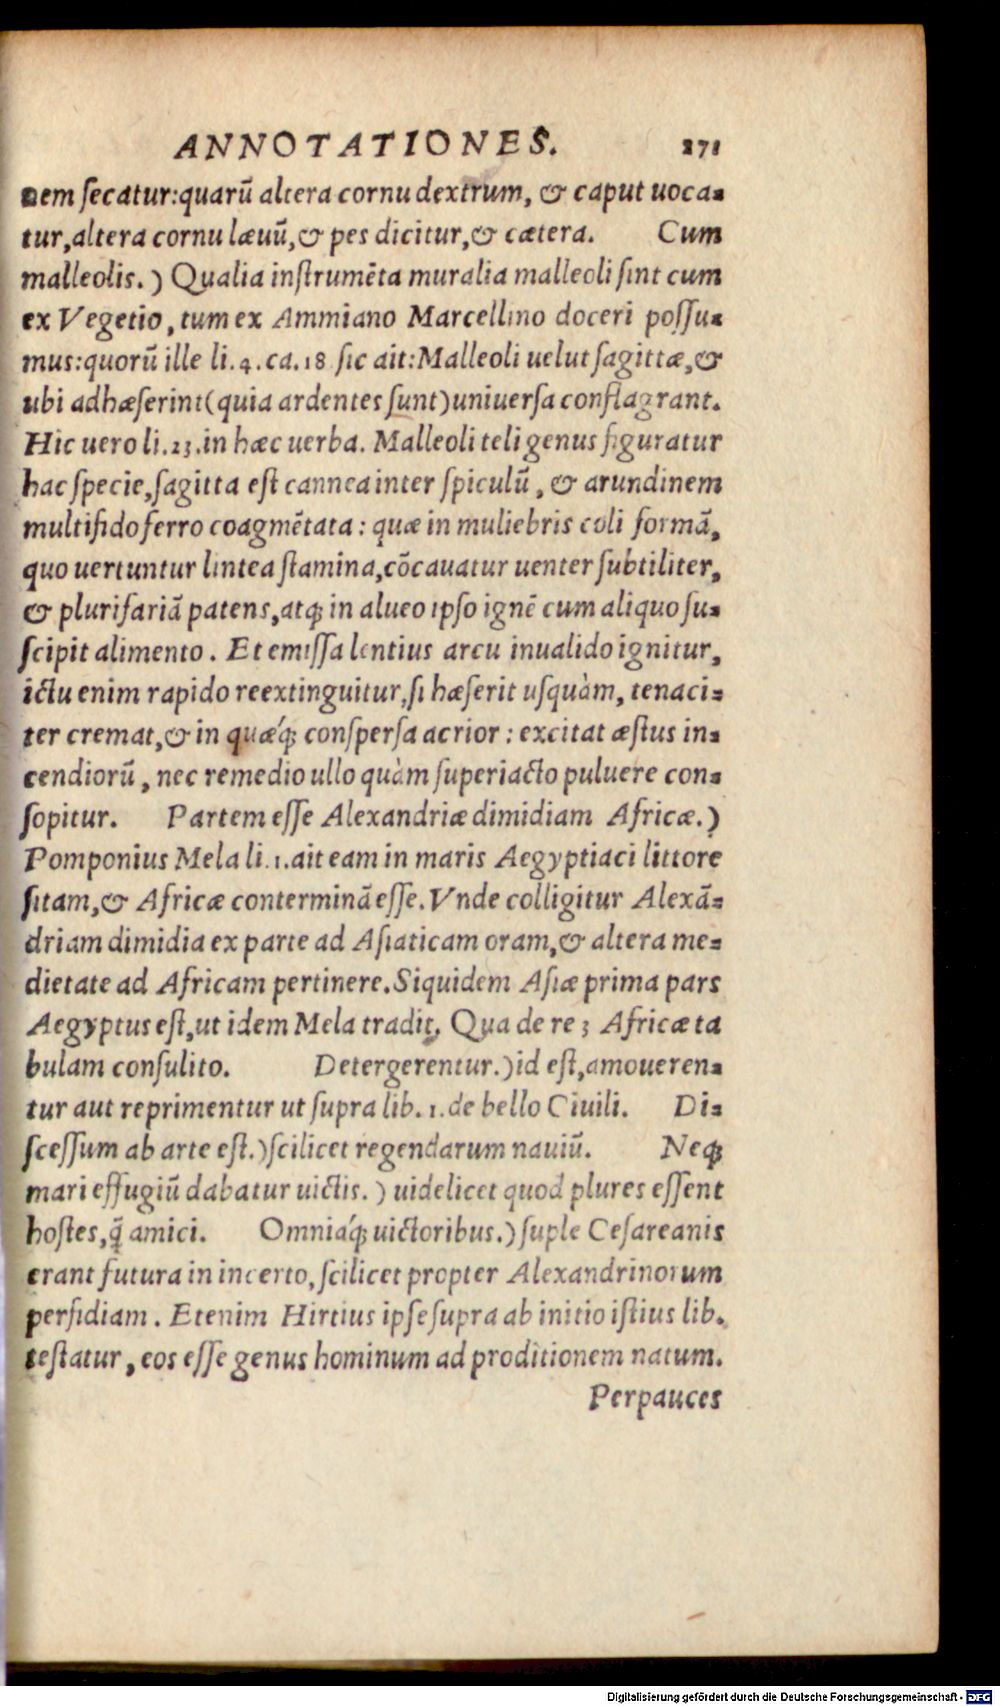 ANNOTATIONES. 271
nem ſecatur:quarũ altera cornu dextrum, & caput uoca-
tur,altera cornu læuũ,& pes dicitur,& cætera. Cum
malleolis.) Qualia inſtrumẽta muralia malleoli ſint cum
ex Vegetio, tum ex Ammiano Marcellino doceri poſſu-
mus:quorũ ille li.4.ca.18 ſic ait:Malleoli uelut ſagittæ,&
ubi adhæſerint(quia ardentes ſunt)uniuerſa conflagrant.
Hic uero li.23.in hæc uerba. Malleoli teli genus figuratur
hac ſpecie,ſagitta eſt cannea inter ſpiculũ, & arundinem
multifido ferro coagmẽtata: quæ in muliebris coli formã,
quo uertuntur lintea ſtamina,cõcauatur uenter ſubtiliter,
& plurifariã patens,atq; in alueo ipſo ignẽ cum aliquo ſu-
ſcipit alimento. Et emiſſa lentius arcu inualido ignitur,
ictu enim rapido reextinguitur,ſi hæſerit uſquàm, tenaci-
ter cremat,& in quæq́; conſperſa acrior: excitat æſtus in-
cendiorũ, nec remedio ullo quàm ſuperiacto puluere con-
ſopitur. Partem eſſe Alexandriæ dimidiam Africæ.)
Pomponius Mela li.1.ait eam in maris Aegyptiaci littore
ſitam,& Africæ conterminã eſſe.Vnde colligitur Alexã-
driam dimidia ex parte ad Aſiaticam oram,& altera me-
dietate ad Africam pertinere.Siquidem Aſiæ prima pars
Aegyptus eſt,ut idem Mela tradit. Qua de re 3 Africæ ta
bulam conſulito. Detergerentur.)id eſt,amoueren-
tur aut reprimentur ut ſupra lib.1.de bello Ciuili. Di-
ſceſſum ab arte eſt.)ſcilicet regendarum nauiũ. Neq;
mari effugiũ dabatur uictis.) uidelicet quod plures eſſent
hoſtes,q̃ amici. Omniaq́; uictoribus.)ſuple Ceſareanis
erant futura in incerto,ſcilicet propter Alexandrinorum
perfidiam. Etenim Hirtius ipſe ſupra ab initio iſtius lib.
teſtatur, eos eſſe genus hominum ad proditionem natum.
Perpauces
Digitalisierung gefördert durch die Deutsche Forschungsgemeinschaft - DFG